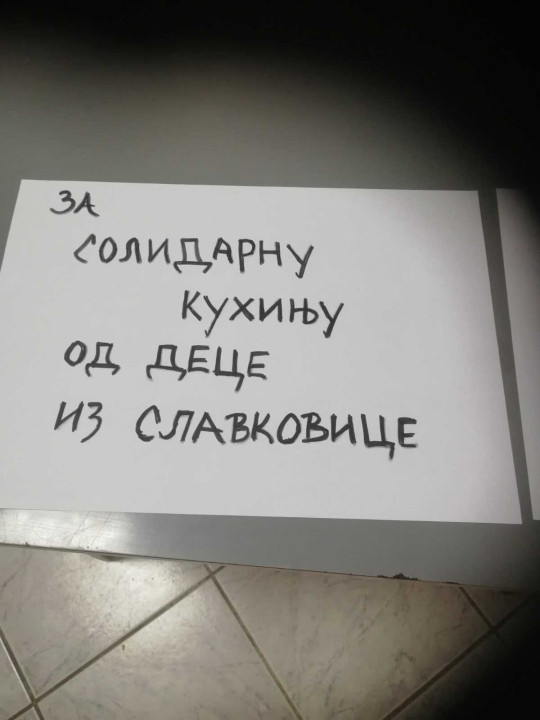 ЗА
СОЛИДАРНУ
КУХИЊУ
ОД ДЕЦЕ
ИЗ СЛАВКОВИЦЕ